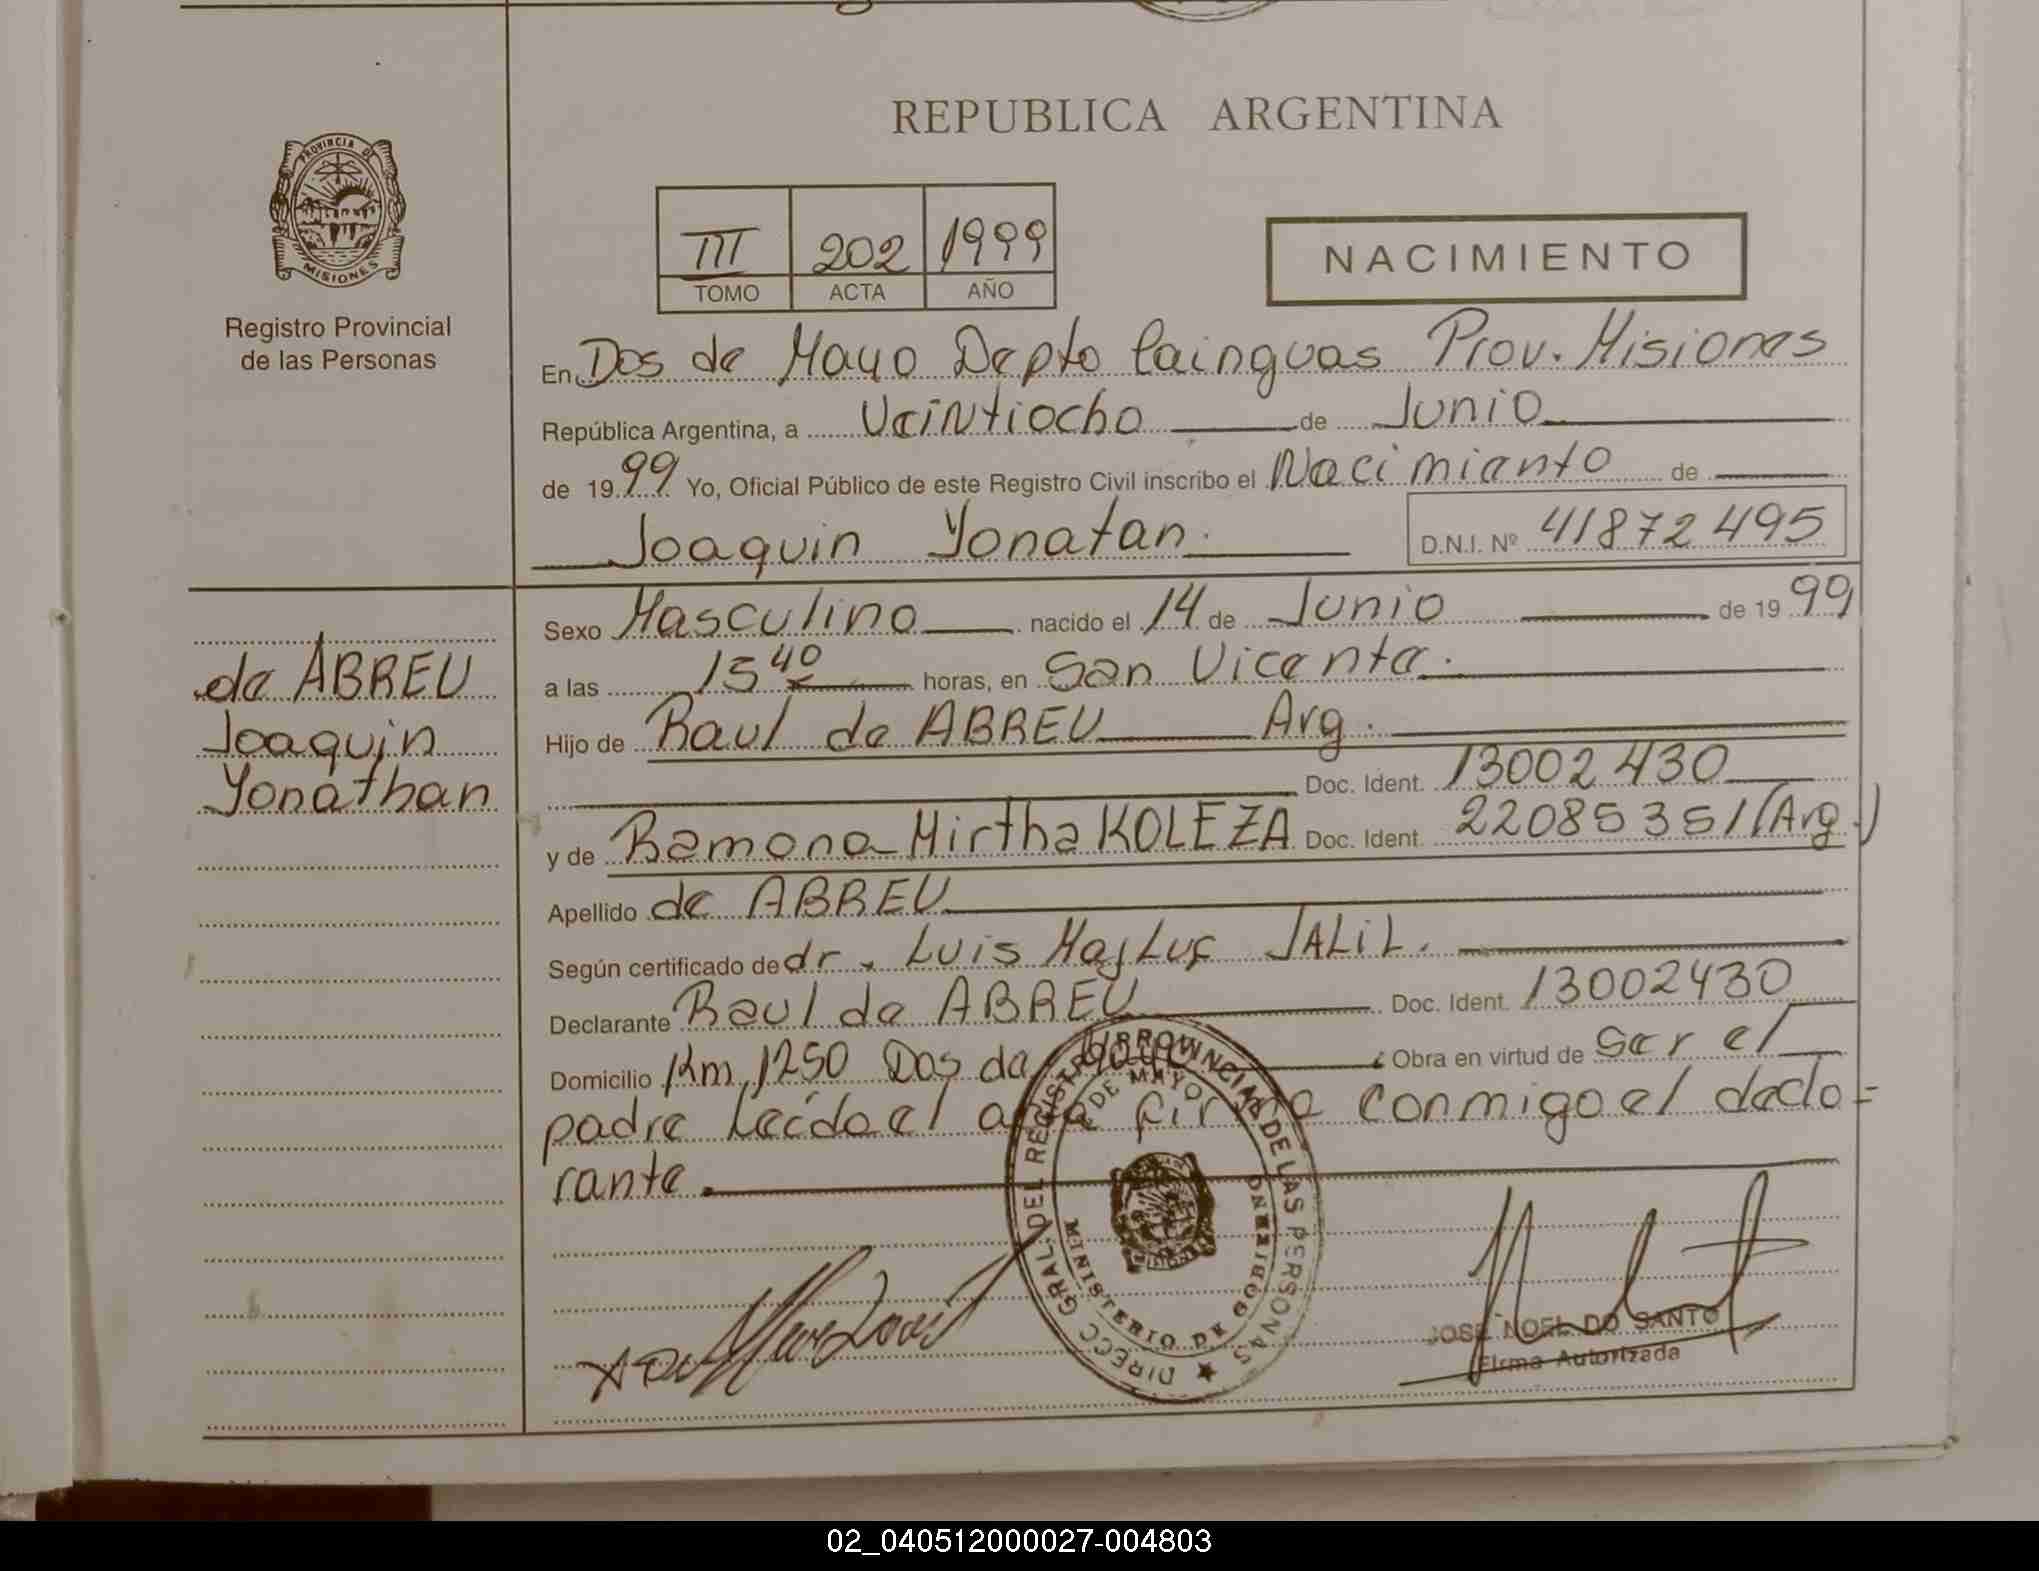 REPUBLICA ARGENTINA
PROVINCIA DE MISIONES
Registro Provincial
de las Personas
III 202 1999
TOMO ACTA AÑO
NACIMIENTO
En Dos de Mayo Depto Cainguas Prov. Misiones
República Argentina, a Veintiocho de Junio
de 1999 Yo, Oficial Público de este Registro Civil inscribo el Nacimiento de
Joaquin Yonatan. D.N.I. Nº 41872495
Sexo Masculino nacido el 14 de Junio de 1999
a las 15 40 horas, en San Vicente.
Hijo de Raul de ABREU Arg.
Doc. Ident. 13002430
y de Ramona Mirtha KOLEZA Doc. Ident. 22085351 (Arg.)
Apellido de ABREU
Según certificado de dr. Luis Majluf JALIL.
Declarante Raul de ABREU Doc. Ident. 13002430
Domicilio Km, 1250 Dos de Mayo Obra en virtud de ser el
padre Leído el acta firma conmigo el decla=
rante.
de ABREU
Joaquin
Yonathan
DIRECC GRAL. DEL REGISTRO PROVINCIAL DE LAS PERSONAS
DE MAYO
MINISTERIO DE GOBIERNO
MISIONES
JOSE NOEL DO SANTO
Firma Autorizada
02_040512000027-004803